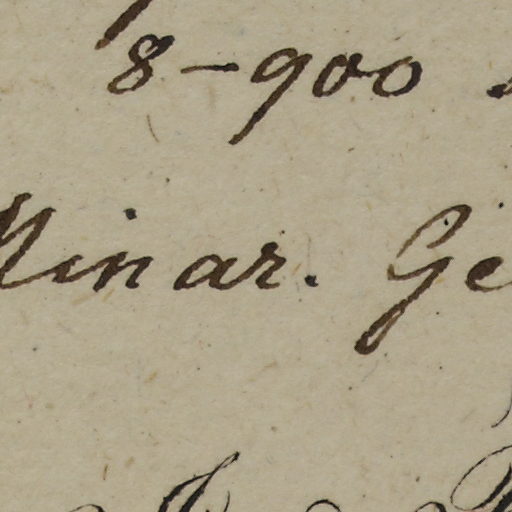 8-900
Minar. Ge